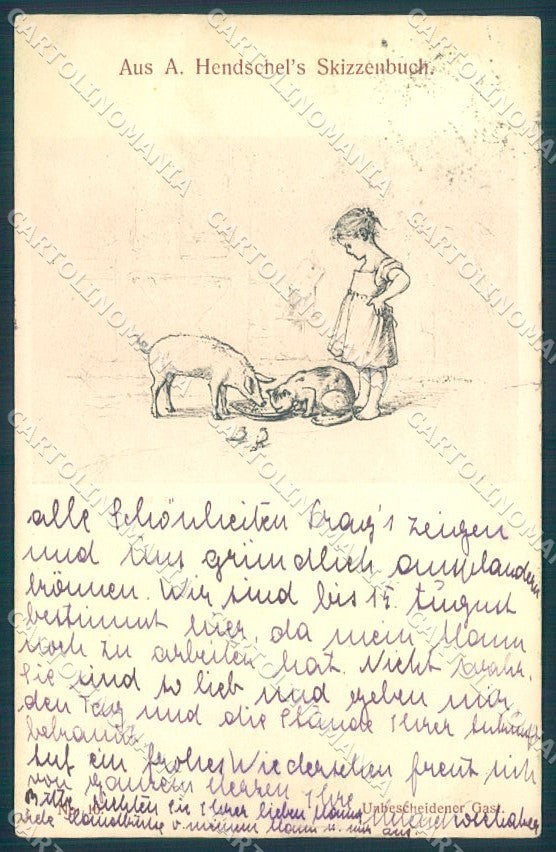 Aus A. Hendschel's Skizzenbuch.
alle Schönheiten Prag's zeigen
und uns gründlich ausplaudern
können. Wir sind bis 15. August
bestimmt hier, da mein Mann
noch zu arbeiten hat. Nicht wahr,
Sie sind so lieb und geben mir
den Tag und die Stunde Ihrer Ankunft
bekannt.
Auf ein frohes Wiedersehen freut sich
von ganzem Herzen Ihre
Bitte richten Sie Ihrer lieben Mama
viele Handküsse v. meinem Mann u. mir aus.
Unbescheidener Gast.
CARTOLINOMANIA